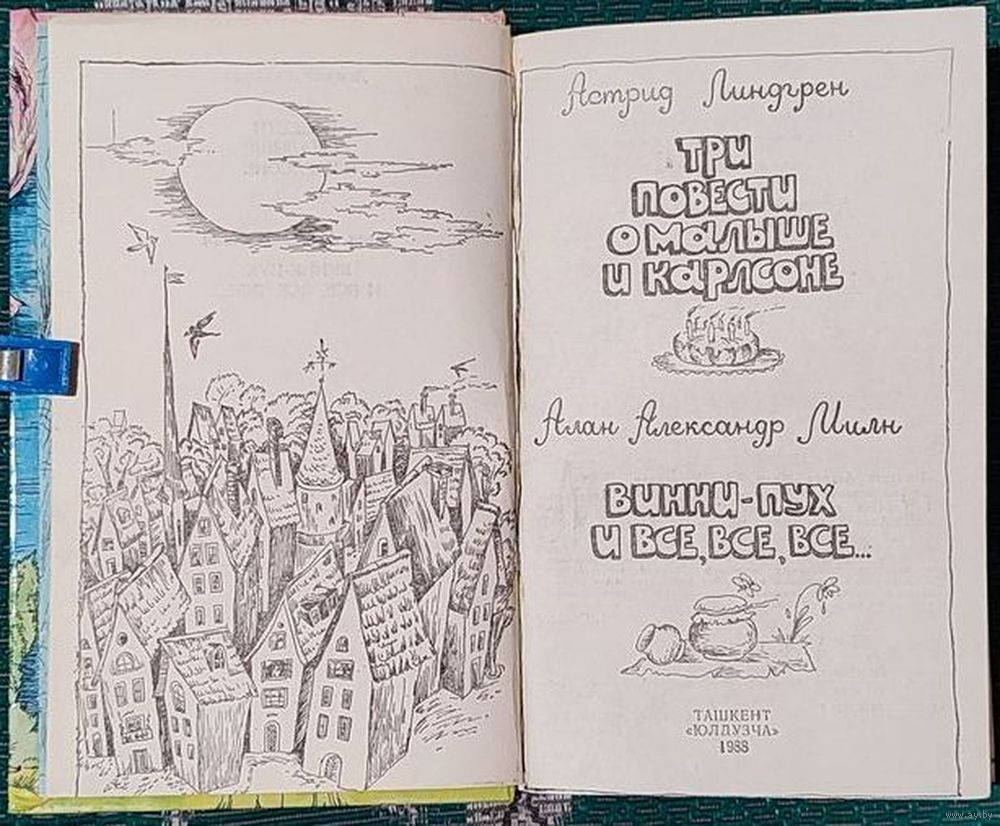 Астрид Линдгрен
ТРИ
ПОВЕСТИ
О МАЛЫШЕ
И КАРЛСОНЕ
Алан Александр Милн
ВИННИ-ПУХ
И ВСЕ, ВСЕ, ВСЕ...
ТАШКЕНТ
«ЮЛДУЗЧА»
1988
www.ay.by